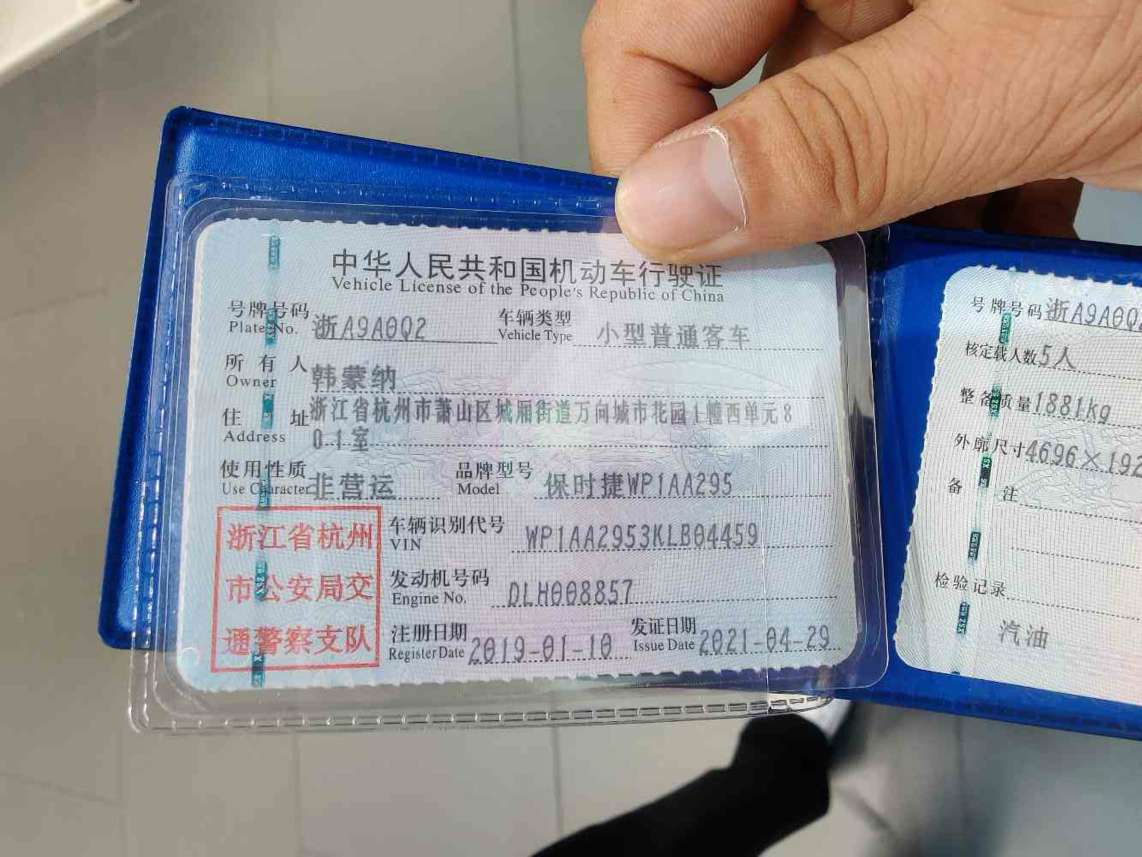 中华人民共和国机动车行驶证
Vehicle License of the People's Republic of China
号牌号码 浙A9A0Q2 车辆类型 小型普通客车
Plate No. Vehicle Type
所有人 韩蒙纳
Owner
住址 浙江省杭州市萧山区城厢街道万向城市花园1幢西单元8
Address 01室
使用性质 非营运 品牌型号 保时捷WP1AA295
Use Character Model
浙江省杭州
市公安局交
通警察支队
车辆识别代号 WP1AA2953KLB04459
VIN
发动机号码 DLH008857
Engine No.
注册日期 2019-01-10 发证日期 2021-04-29
Register Date Issue Date
号牌号码 浙A9A0Q
核定载人数 5人
整备质量 1881kg
外廓尺寸 4696×192
备注
检验记录
汽油